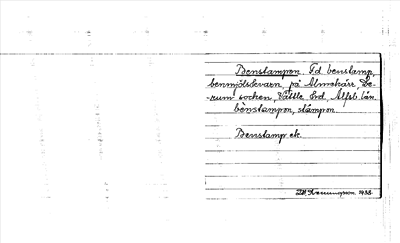 Benstampen. Fd benstamp,
benmjölskvarn, på Almekärr, Le-
-rum socken, Vättle hrd, Älfsb län.
bènstampen, stámpen.
Benstamp ek.
1938